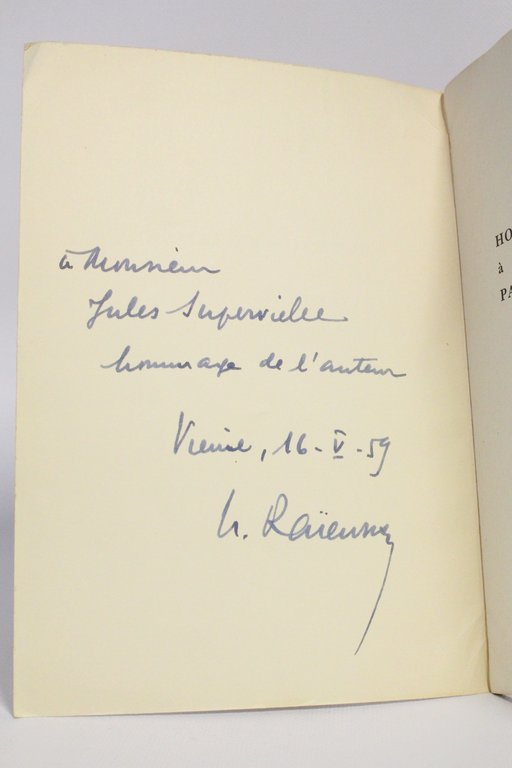 à Monsieur
Jules Supervielle
hommage de l'auteur
Vienne, 16-V-59
HO
à
PA